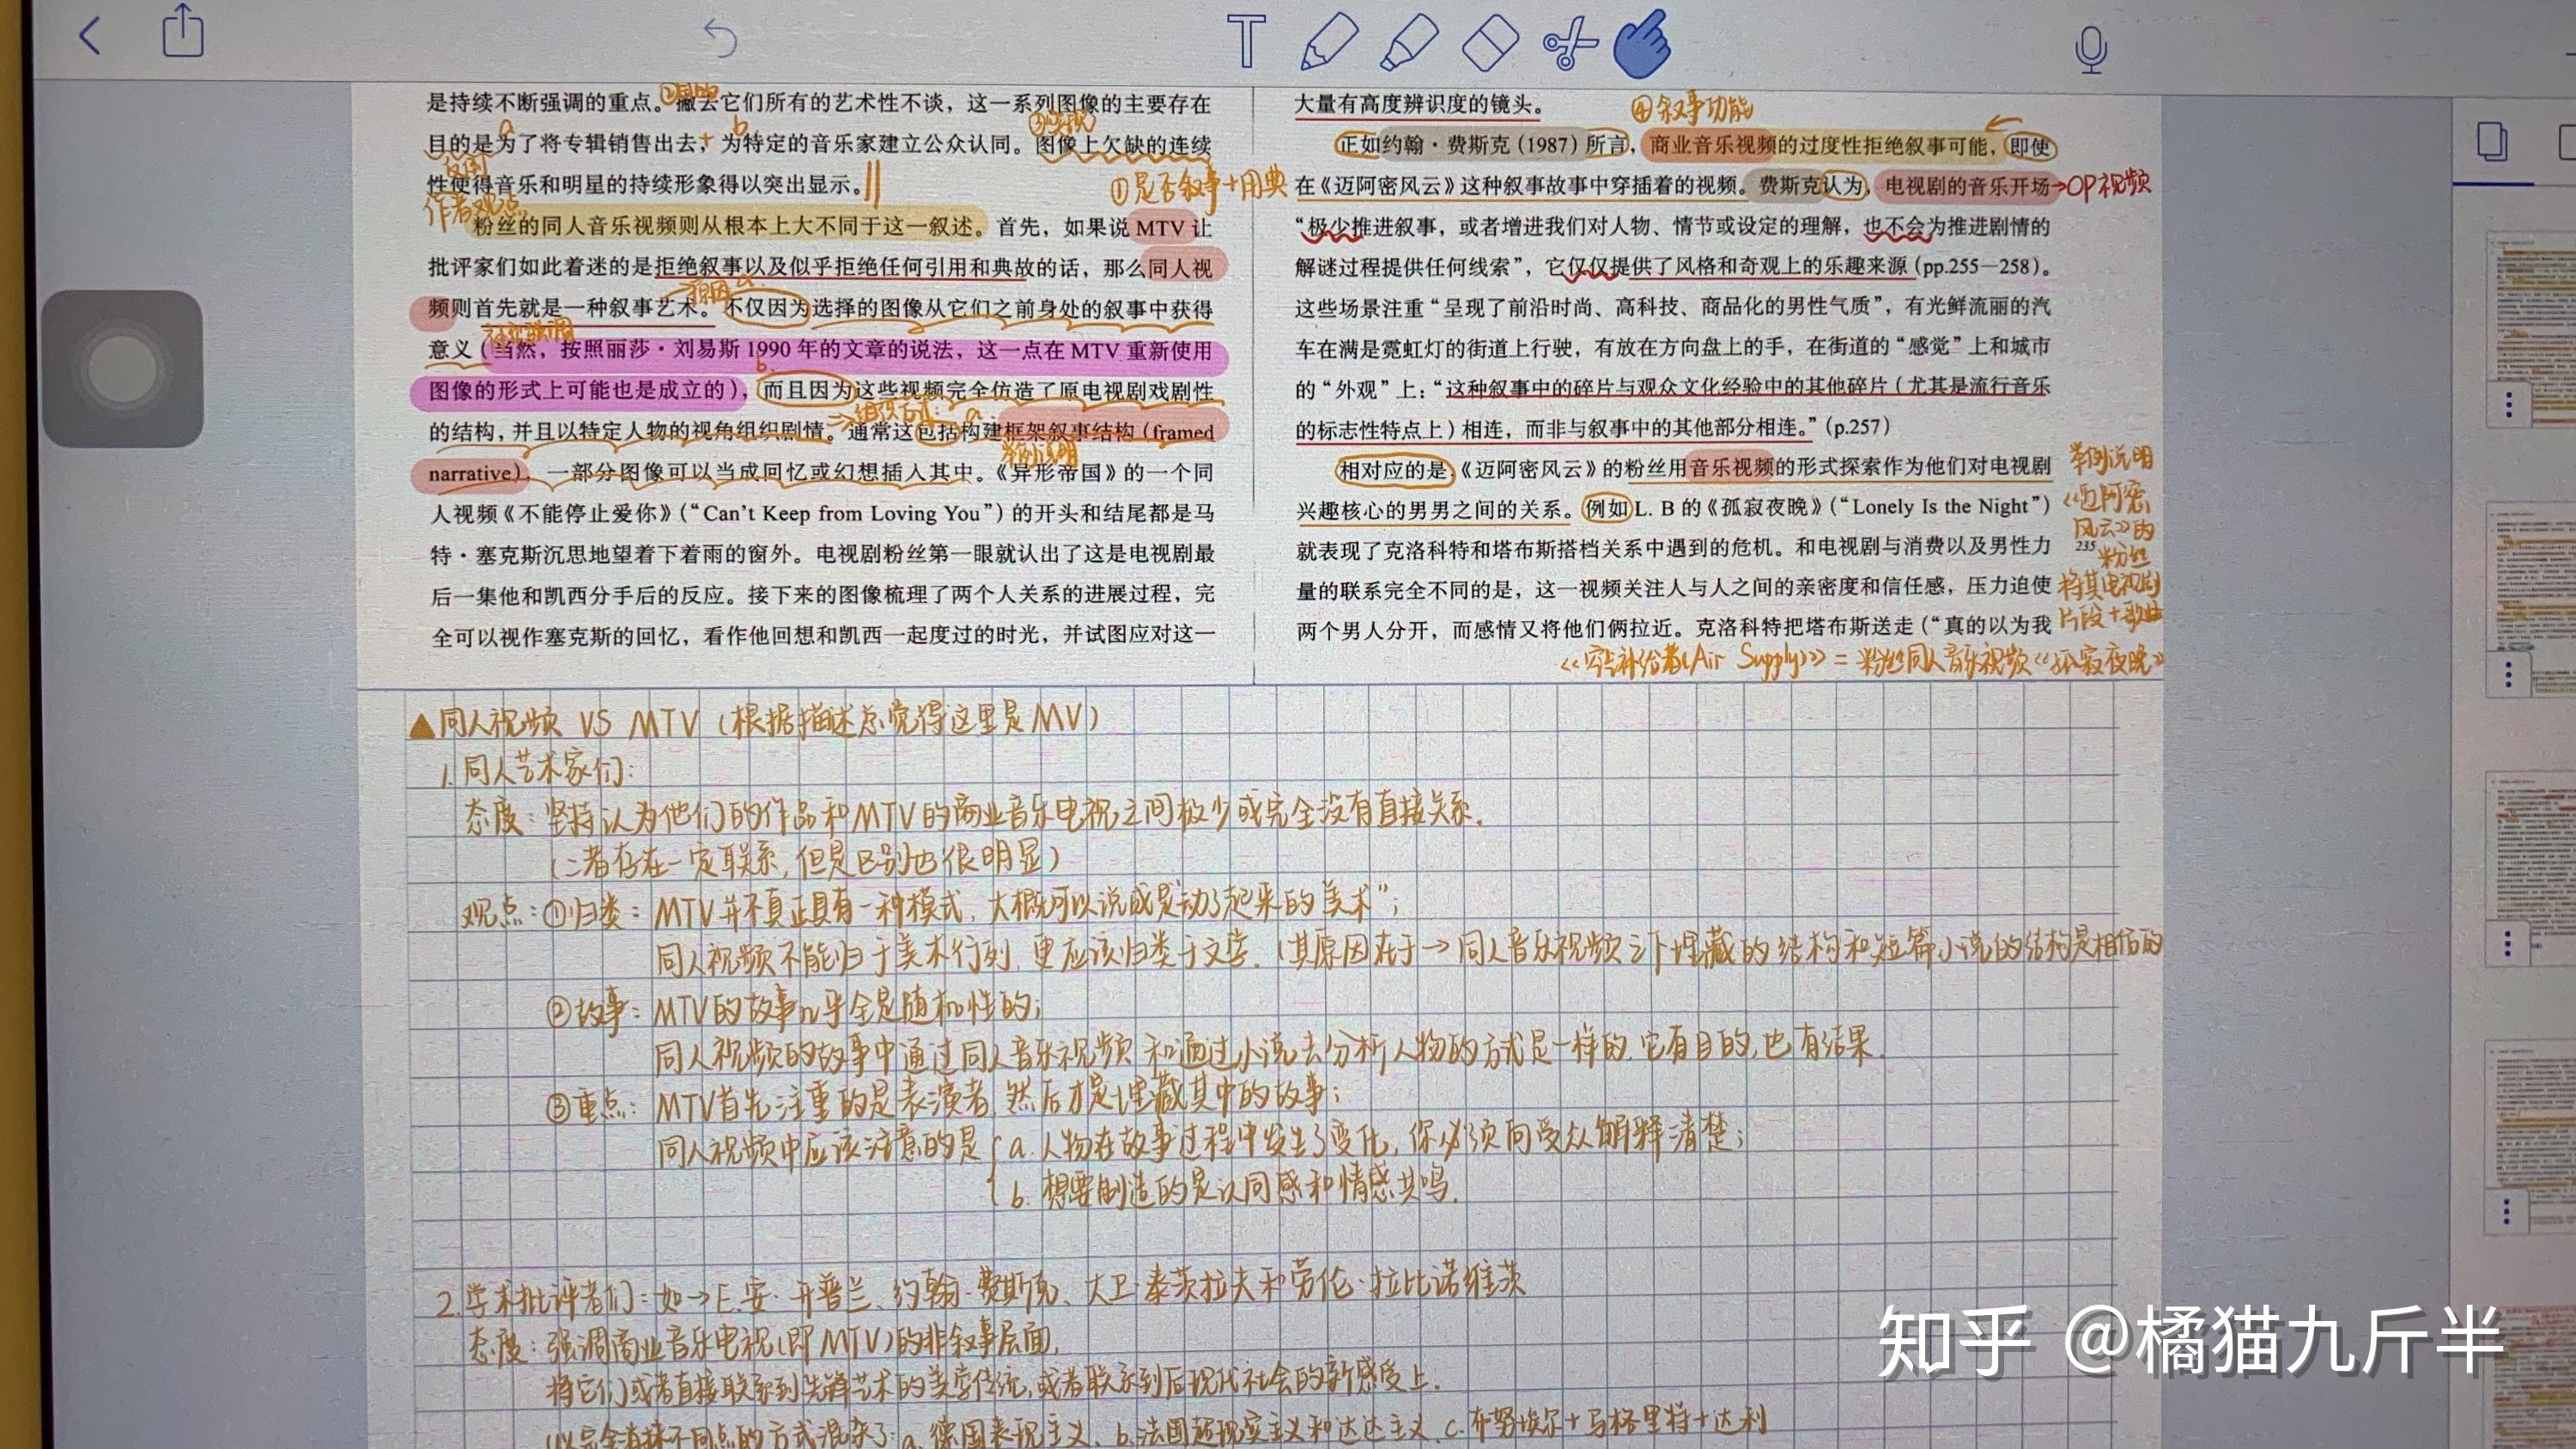 是持续不断强调的重点。撇去它们所有的艺术性不谈，这一系列图像的主要存在
目的是为了将专辑销售出去，为特定的音乐家建立公众认同。图像上欠缺的连续
性使得音乐和明星的持续形象得以突出显示。
作者观点
①是否叙事+用典
粉丝的同人音乐视频则从根本上大不同于这一叙述。首先，如果说 MTV 让
批评家们如此着迷的是拒绝叙事以及似乎拒绝任何引用和典故的话，那么同人视
频则首先就是一种叙事艺术。不仅因为选择的图像从它们之前身处的叙事中获得
意义（当然，按照丽莎·刘易斯 1990 年的文章的说法，这一点在 MTV 重新使用
图像的形式上可能也是成立的），而且因为这些视频完全仿造了原电视剧戏剧性
的结构，并且以特定人物的视角组织剧情。通常这包括构建框架叙事结构（framed
narrative），一部分图像可以当成回忆或幻想插入其中。《异形帝国》的一个同
人视频《不能停止爱你》（“Can't Keep from Loving You”）的开头和结尾都是马
特·塞克斯沉思地望着下着雨的窗外。电视剧粉丝第一眼就认出了这是电视剧最
后一集他和凯西分手后的反应。接下来的图像梳理了两个人关系的进展过程，完
全可以视作塞克斯的回忆，看作他回想和凯西一起度过的时光，并试图应对这一
大量有高度辨识度的镜头。
④叙事功能
正如约翰·费斯克（1987）所言，商业音乐视频的过度性拒绝叙事可能，即使
在《迈阿密风云》这种叙事故事中穿插着的视频。费斯克认为，电视剧的音乐开场
→OP视频
“极少推进叙事，或者增进我们对人物、情节或设定的理解，也不会为推进剧情的
解谜过程提供任何线索”，它仅仅提供了风格和奇观上的乐趣来源（pp.255—258）。
这些场景注重“呈现了前沿时尚、高科技、商品化的男性气质”，有光鲜流丽的汽
车在满是霓虹灯的街道上行驶，有放在方向盘上的手，在街道的“感觉”上和城市
的“外观”上：“这种叙事中的碎片与观众文化经验中的其他碎片（尤其是流行音乐
的标志性特点上）相连，而非与叙事中的其他部分相连。”（p.257）
相对应的是《迈阿密风云》的粉丝用音乐视频的形式探索作为他们对电视剧
兴趣核心的男男之间的关系。例如 L. B 的《孤寂夜晚》（“Lonely Is the Night”）
就表现了克洛科特和塔布斯搭档关系中遇到的危机。和电视剧与消费以及男性力
量的联系完全不同的是，这一视频关注人与人之间的亲密度和信任感，压力迫使
两个男人分开，而感情又将他们俩拉近。克洛科特把塔布斯送走（“真的以为我
举例说明
《迈阿密
风云》的
235
粉丝
将其电视剧
片段+歌曲
《空气补给者(Air Supply)》=粉丝同人音乐视频《孤寂夜晚》
▲同人视频 VS MTV（根据描述总觉得这里是MV）
1.同人艺术家们：
态度：坚持认为他们的作品和MTV的商业音乐电视之间极少或完全没有直接关系.
（二者存在一定联系，但是区别也很明显）
观点：①归类：MTV并不真正具有一种模式，大概可以说成是“动了起来的美术”；
同人视频不能归于美术行列，更应该归类于文学.（其原因在于→同人音乐视频之下埋藏的结构和短篇小说的结构是相似的
②故事：MTV的故事几乎全是随机性的；
同人视频的故事中通过同人音乐视频和通过小说去分析人物的方式是一样的，它有目的，也有结果.
③重点：MTV首先注重的是表演者，然后才是埋藏其中的故事；
同人视频中应该注意的是{a.人物在故事过程中发生了变化，你必须向受众解释清楚；
b.想要制造的是认同感和情感共鸣.
2.学术批评者们：如→E.安·开普兰、约翰·费斯克、大卫·泰茨拉夫和劳伦·拉比诺维茨
态度：强调商业音乐电视(即MTV)的非叙事层面，
将它们或者直接联系到先锋艺术的美学传统，或者联系到后现代社会的新感受上.
a.德国表现主义、b.法国超现实主义和达达主义、c.布努埃尔+马格里特+达利
知乎 @橘猫九斤半